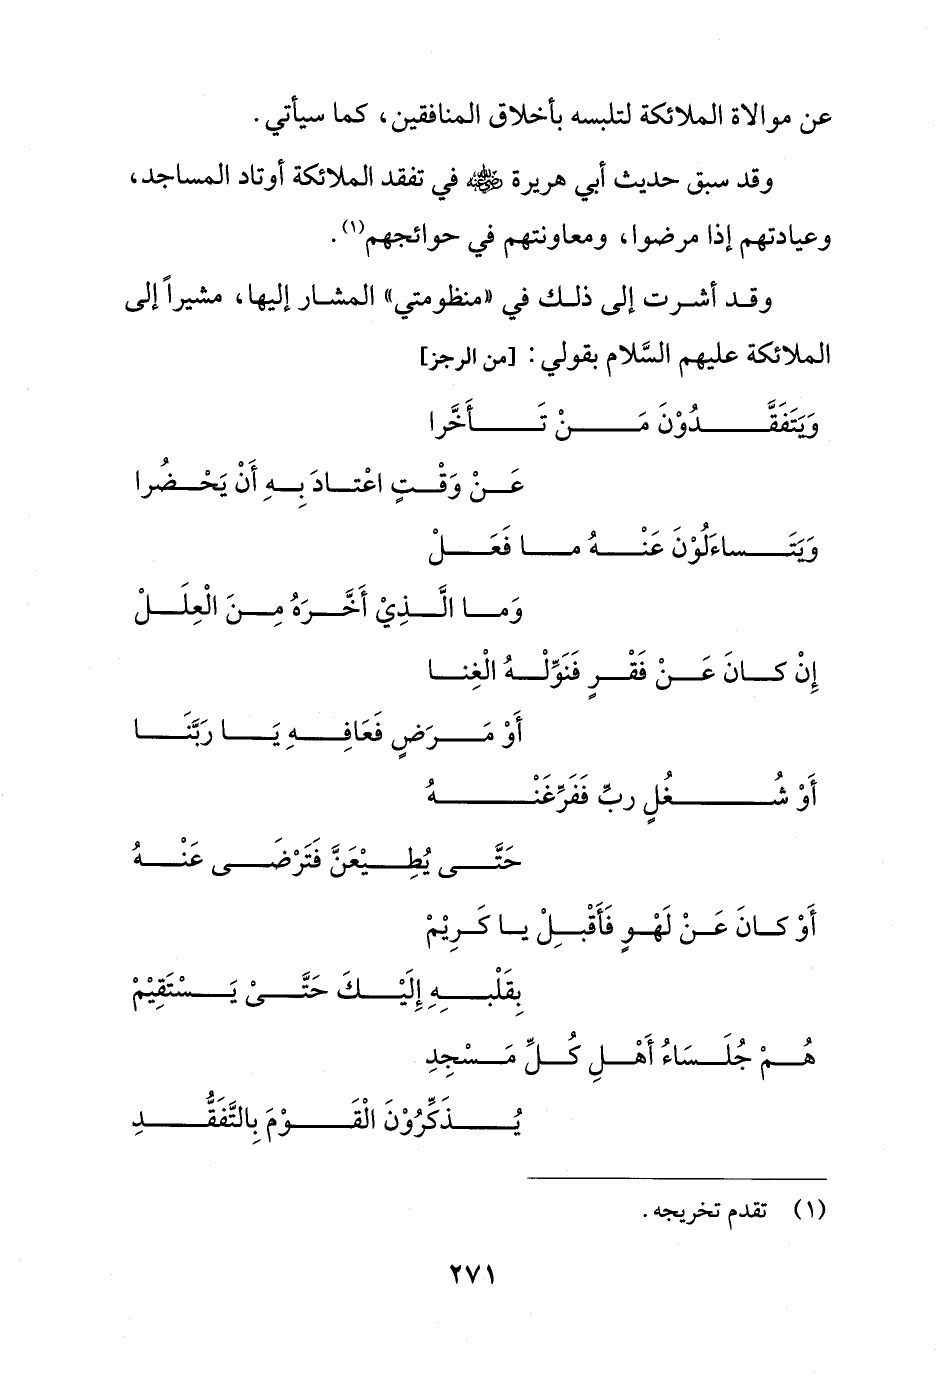 عن موالاة الملائكة لتلبسه بأخلاق المنافقين، كما سيأتي.
وقد سبق حديث أبي هريرة رضي الله عنه في تفقد الملائكة أوتاد المساجد،
وعيادتهم إذا مرضوا، ومعاونتهم في حوائجهم(١).
وقد أشرت إلى ذلك في «منظومتي» المشار إليها، مشيراً إلى
الملائكة عليهم السَّلام بقولي: [من الرجز]
وَيَتَفَقَّدُوْنَ مَنْ تَأَخَّرا
عَنْ وَقْتٍ اعْتادَ بِهِ أَنْ يَحْضُرا
وَيَتَساءَلُوْنَ عَنْهُ ما فَعَلْ
وَما الَّذِيْ أَخَّرَهُ مِنَ الْعِلَلْ
إِنْ كانَ عَنْ فَقْرٍ فَنَوِّلْهُ الْغِنا
أَوْ مَرَضٍ فَعَافِهِ يَا رَبَّنَا
أَوْ شُغُلٍ ربِّ فَفَرِّغَنْهُ
حَتَّى يُطِيْعَنَّ فَتَرْضَى عَنْهُ
أَوْ كانَ عَنْ لَهْوٍ فَأَقْبِلْ يا كَرِيْمْ
بِقَلْبِهِ إِلَيْكَ حَتَّىْ يَسْتَقِيْمْ
هُمْ جُلَسَاءُ أَهْلِ كُلِّ مَسْجِدِ
يُذَكِّرُوْنَ الْقَوْمَ بِالتَّفَقُّدِ
(١) تقدم تخريجه.
٢٧١